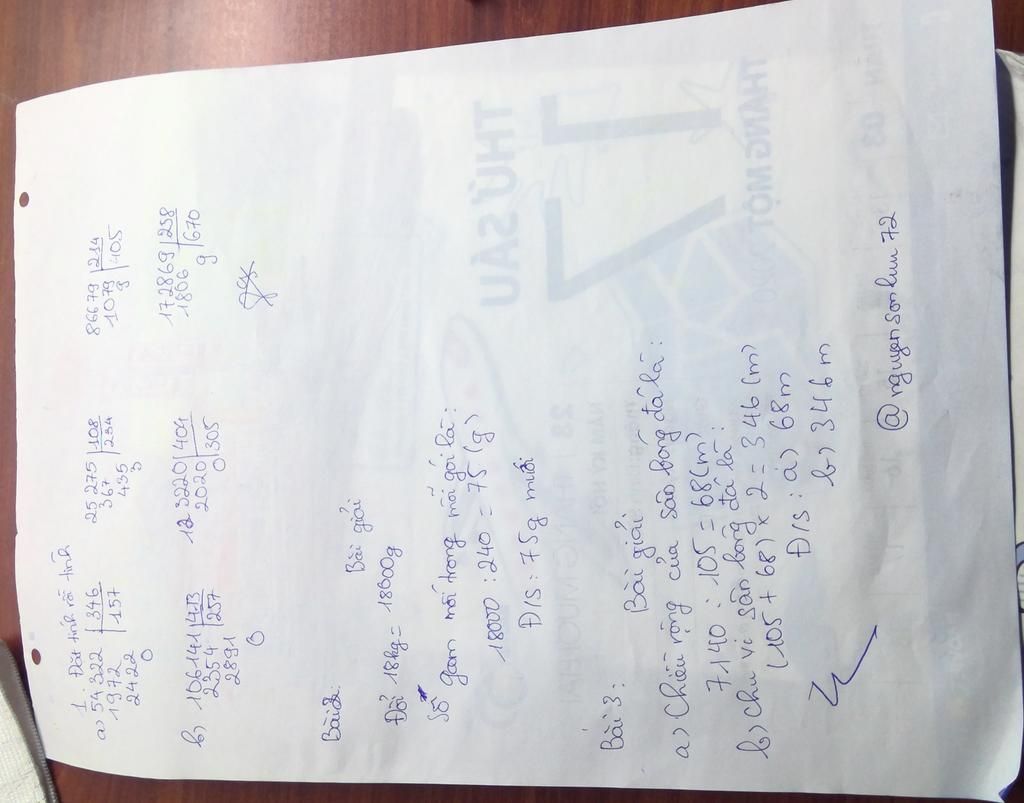 1. Đặt tính rồi tính
a) 54322 | 346 25275 | 108 86679 | 214
1972 | 157 367 | 234 1079 | 405
2422 435 9
0 3
b) 106141 | 413 123220 | 404 172869 | 258
2354 | 257 2020 | 305 1806 | 670
2891 0 9
0
Bài 2:
Bài giải
Đổi 18kg = 18000g
Số gam muối trong mỗi gói là:
18000 : 240 = 75 (g)
Đ/S : 75g muối
Bài 3:
Bài giải
a) Chiều rộng của sân bóng đá là:
7140 : 105 = 68 (m)
b) chu vi sân bóng đá là:
(105 + 68) x 2 = 346 (m)
Đ/S : a) 68m
b) 346m
@nguyensonluu72
THỨ SÁU
THÁNG MỘT